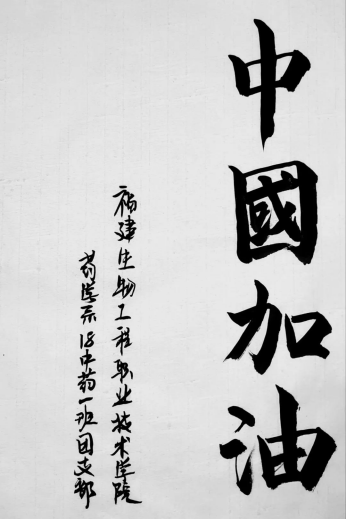 中國加油
福建生物工程职业技术学院
药学系18中药一班团支部